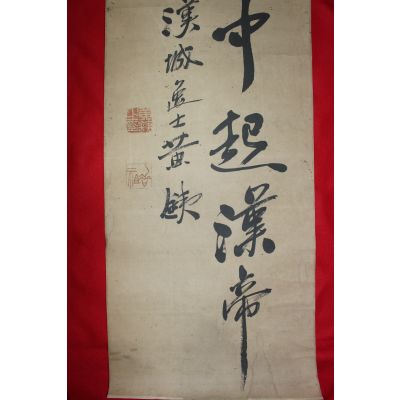 中起漢帝
漢城逸士黄